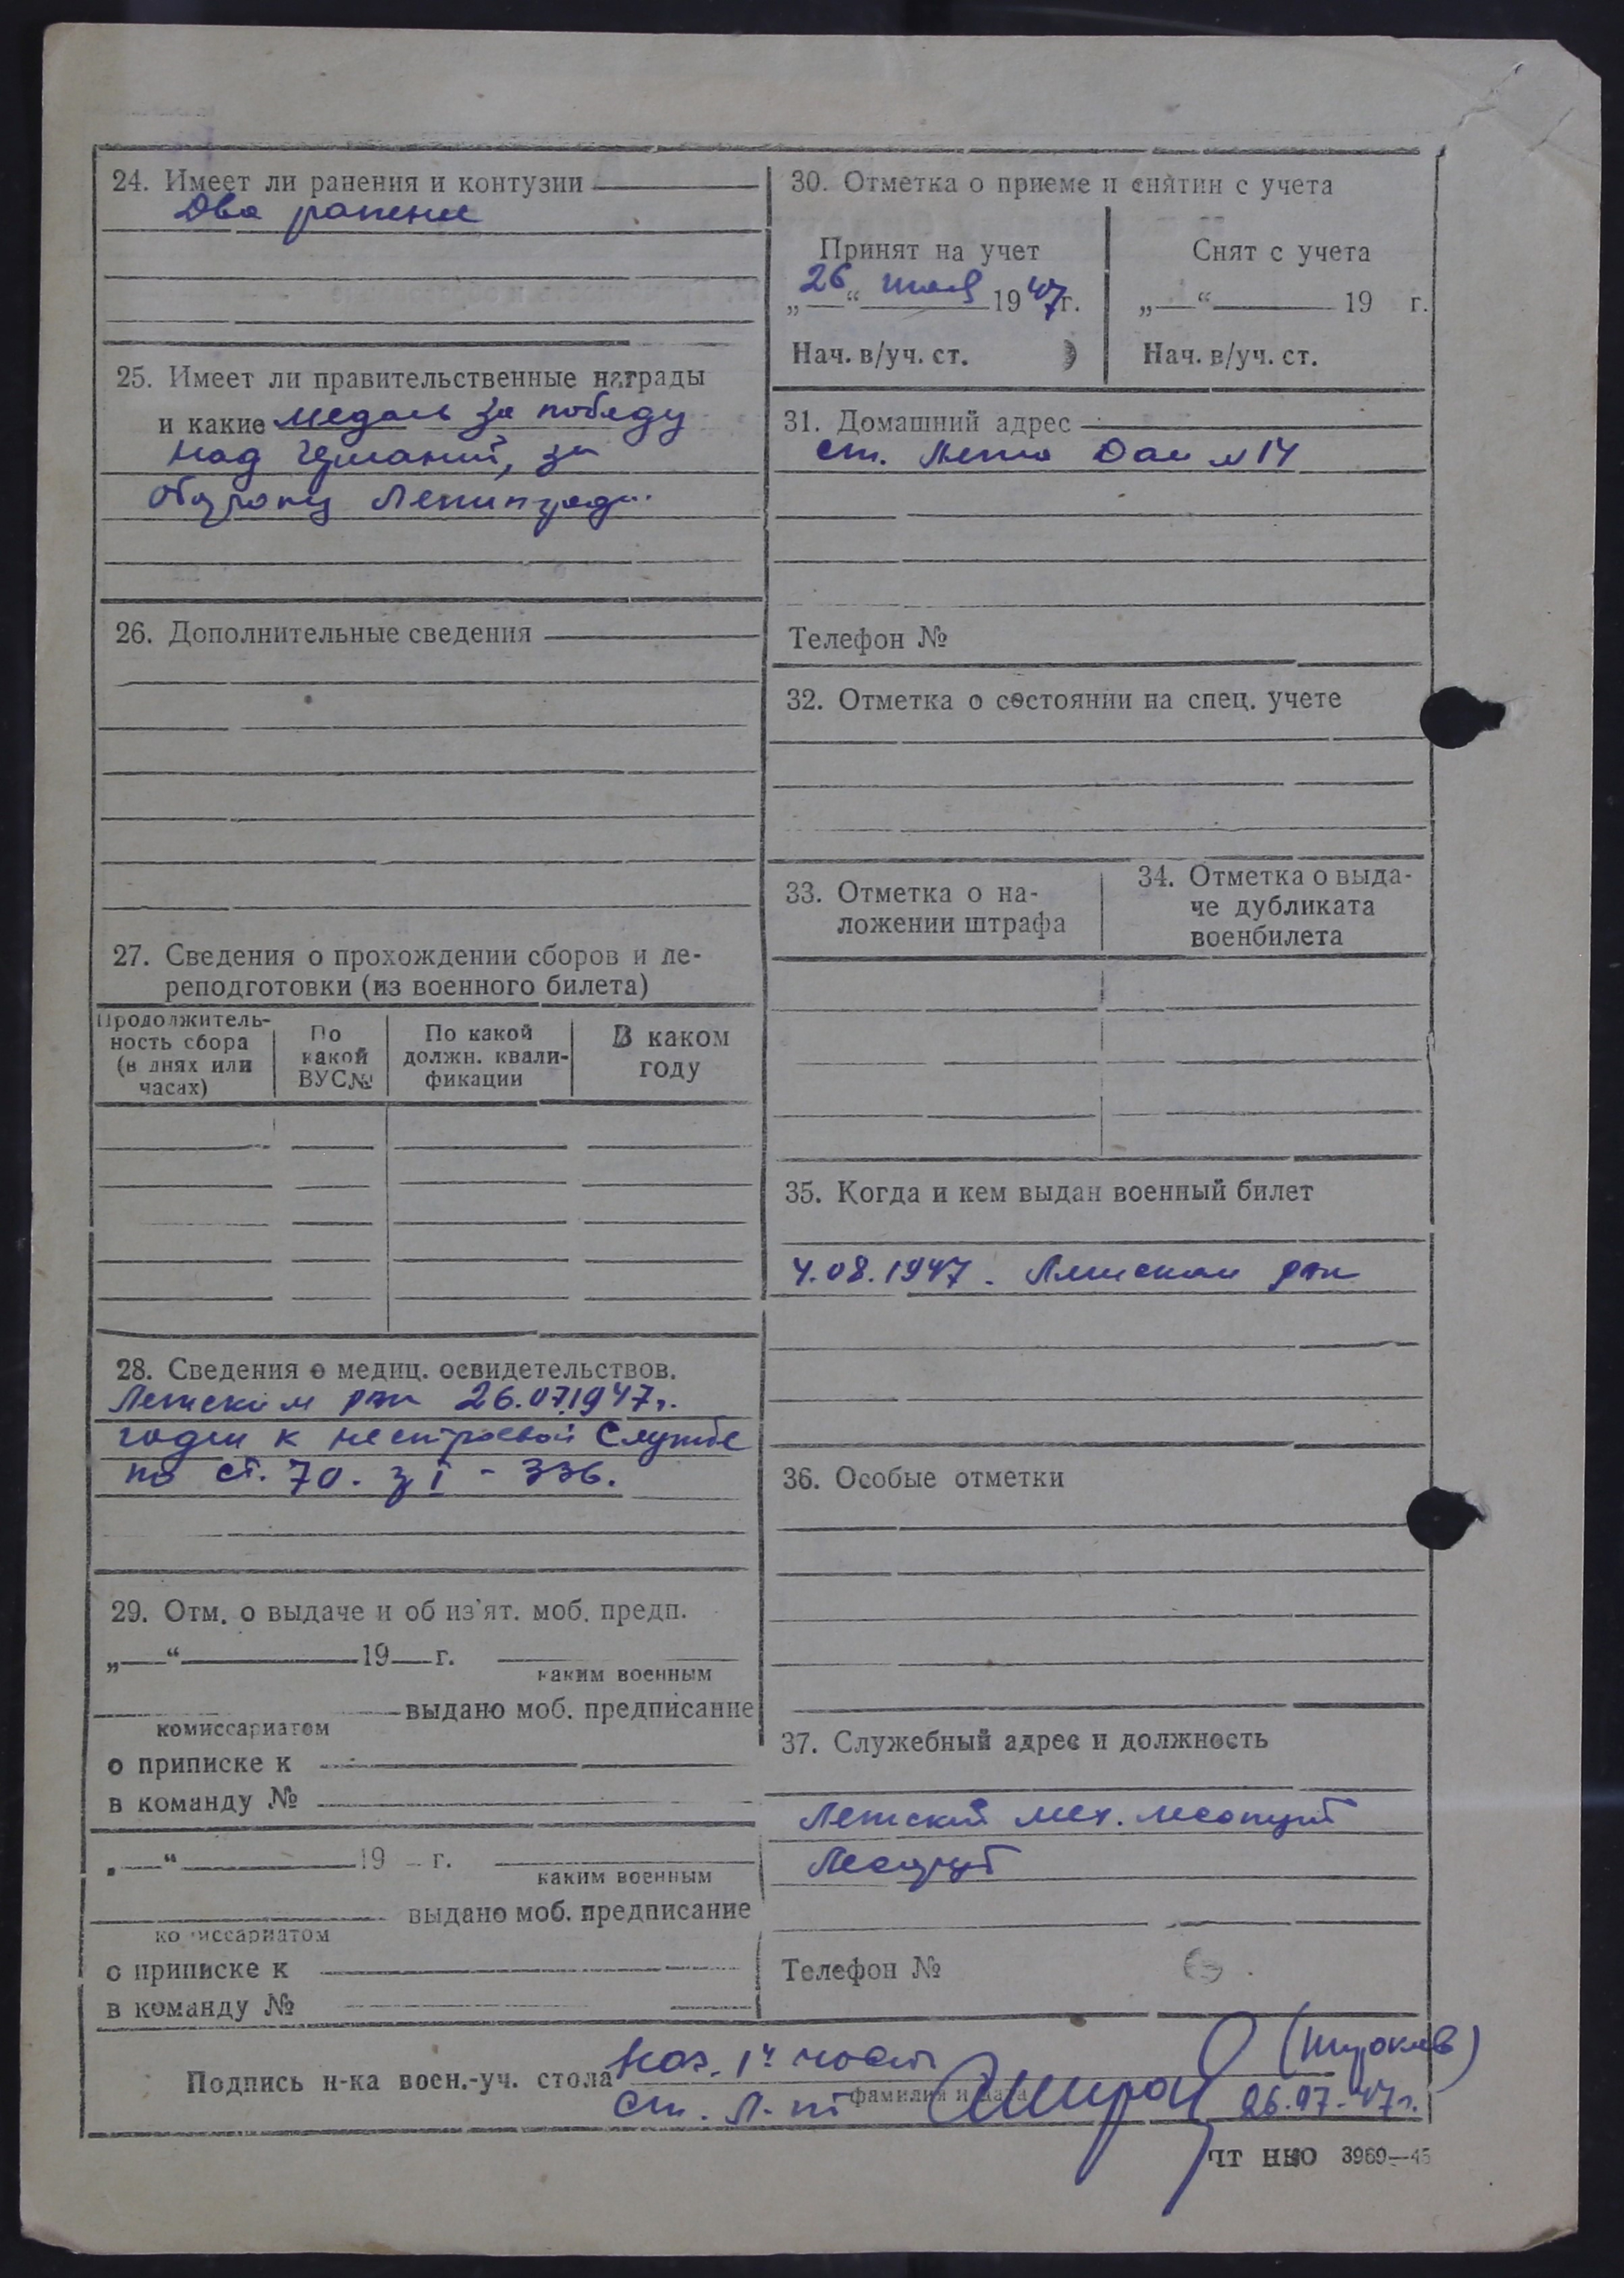 24. Имеет ли ранения и контузии
Два ранение
25. Имеет ли правительственные награды
и какие медаль за победу
над Германий, за
оборону Ленинграда.
26. Дополнительные сведения
27. Сведения о прохождении сборов и пе-
реподготовки (из военного билета)
Продолжитель-
ность сбора
(в днях или
часах)
По
какой
ВУС№
По какой
должн. квали-
фикации
В каком
году
28. Сведения о медиц. освидетельствов.
Летским рвк 26.07.1947г.
годен к нестроевой службе
по ст. 70. гр I - 336.
29. Отм. о выдаче и об из'ят. моб. предп.
„ “ 19 г.
каким военным
выдано моб. предписание
комиссариатом
о приписке к
в команду №
„ “ 19 г.
каким военным
выдано моб. предписание
комиссариатом
о приписке к
в команду №
30. Отметка о приеме и снятии с учета
Принят на учет
„26“ июля 1947г.
Нач. в/уч. ст.
Снят с учета
„ “ 19 г.
Нач. в/уч. ст.
31. Домашний адрес
ст. Летка Дом №14
Телефон №
32. Отметка о состоянии на спец. учете
33. Отметка о на-
ложении штрафа
34. Отметка о выда-
че дубликата
военбилета
35. Когда и кем выдан военный билет
4.08.1947. Летским рвк
36. Особые отметки
37. Служебный адрес и должность
Летский мех. лесопункт
Лесоруб
Телефон №
Подпись н-ка воен.-уч. стола
Нач. 1й части
ст. л-нт
фамилия и дата
(Широков)
26.07-47г.
ЦТ НКО 3969—45